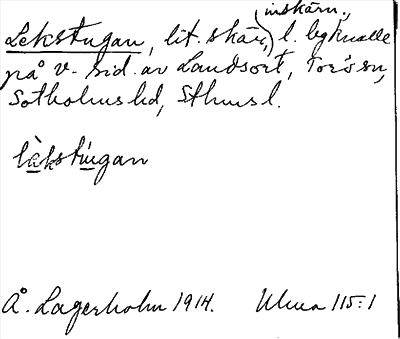 inskärn.,
Lekstugan, lit. skär, l. bgknalle
på v. sid. av Landsort, Torö sn,
Sotholms hd, Sthms l.
lèkstúgan
Å. Lagerholm 1914. Uma 115:1